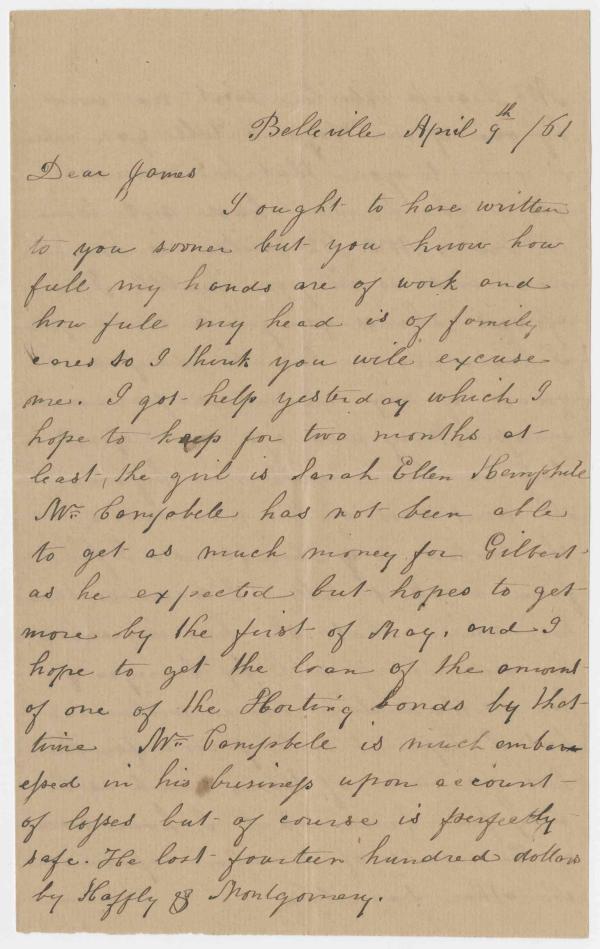 Belleville April 9th /61
Dear James
I ought to have written
to you sooner but you know how
full my hands are of work and
how full my head is of family
cares so I think you will excuse
me. I got help yesterday which I
hope to keep for two months at
least, the girl is Sarah Ellen Hemphill
Mr. Campbell has not been able
to get as much money for Gilbert
as he expected but hopes to get
more by the first of May. and I
hope to get the loan of the amount
of one of the Horting bonds by that
time Mr. Campbell is much embarr
essed in his business upon account
of losses but of course is perfectly
safe. He lost fourteen hundred dollars
by Haffly & Montgomery.